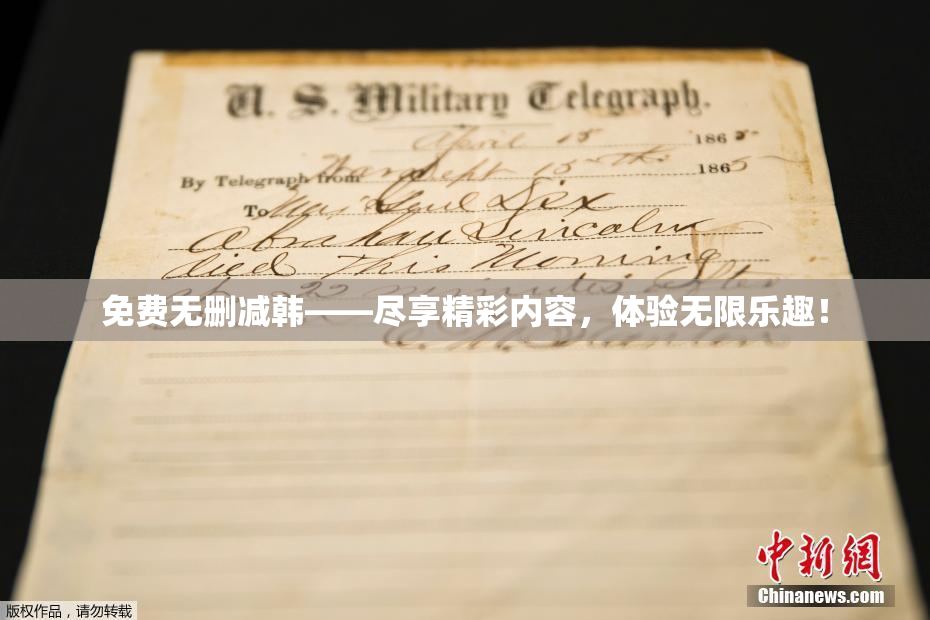 U. S. Military Telegraph.
April 15 1865-
By Telegraph from War Dept 15th 1865
To Maj Genl Dix
Abraham Lincoln
died This Morning
22 minutes after
免费无删减韩——尽享精彩内容，体验无限乐趣！
E. M. Stanton
中新網
Chinanews.com
版权作品，请勿转载